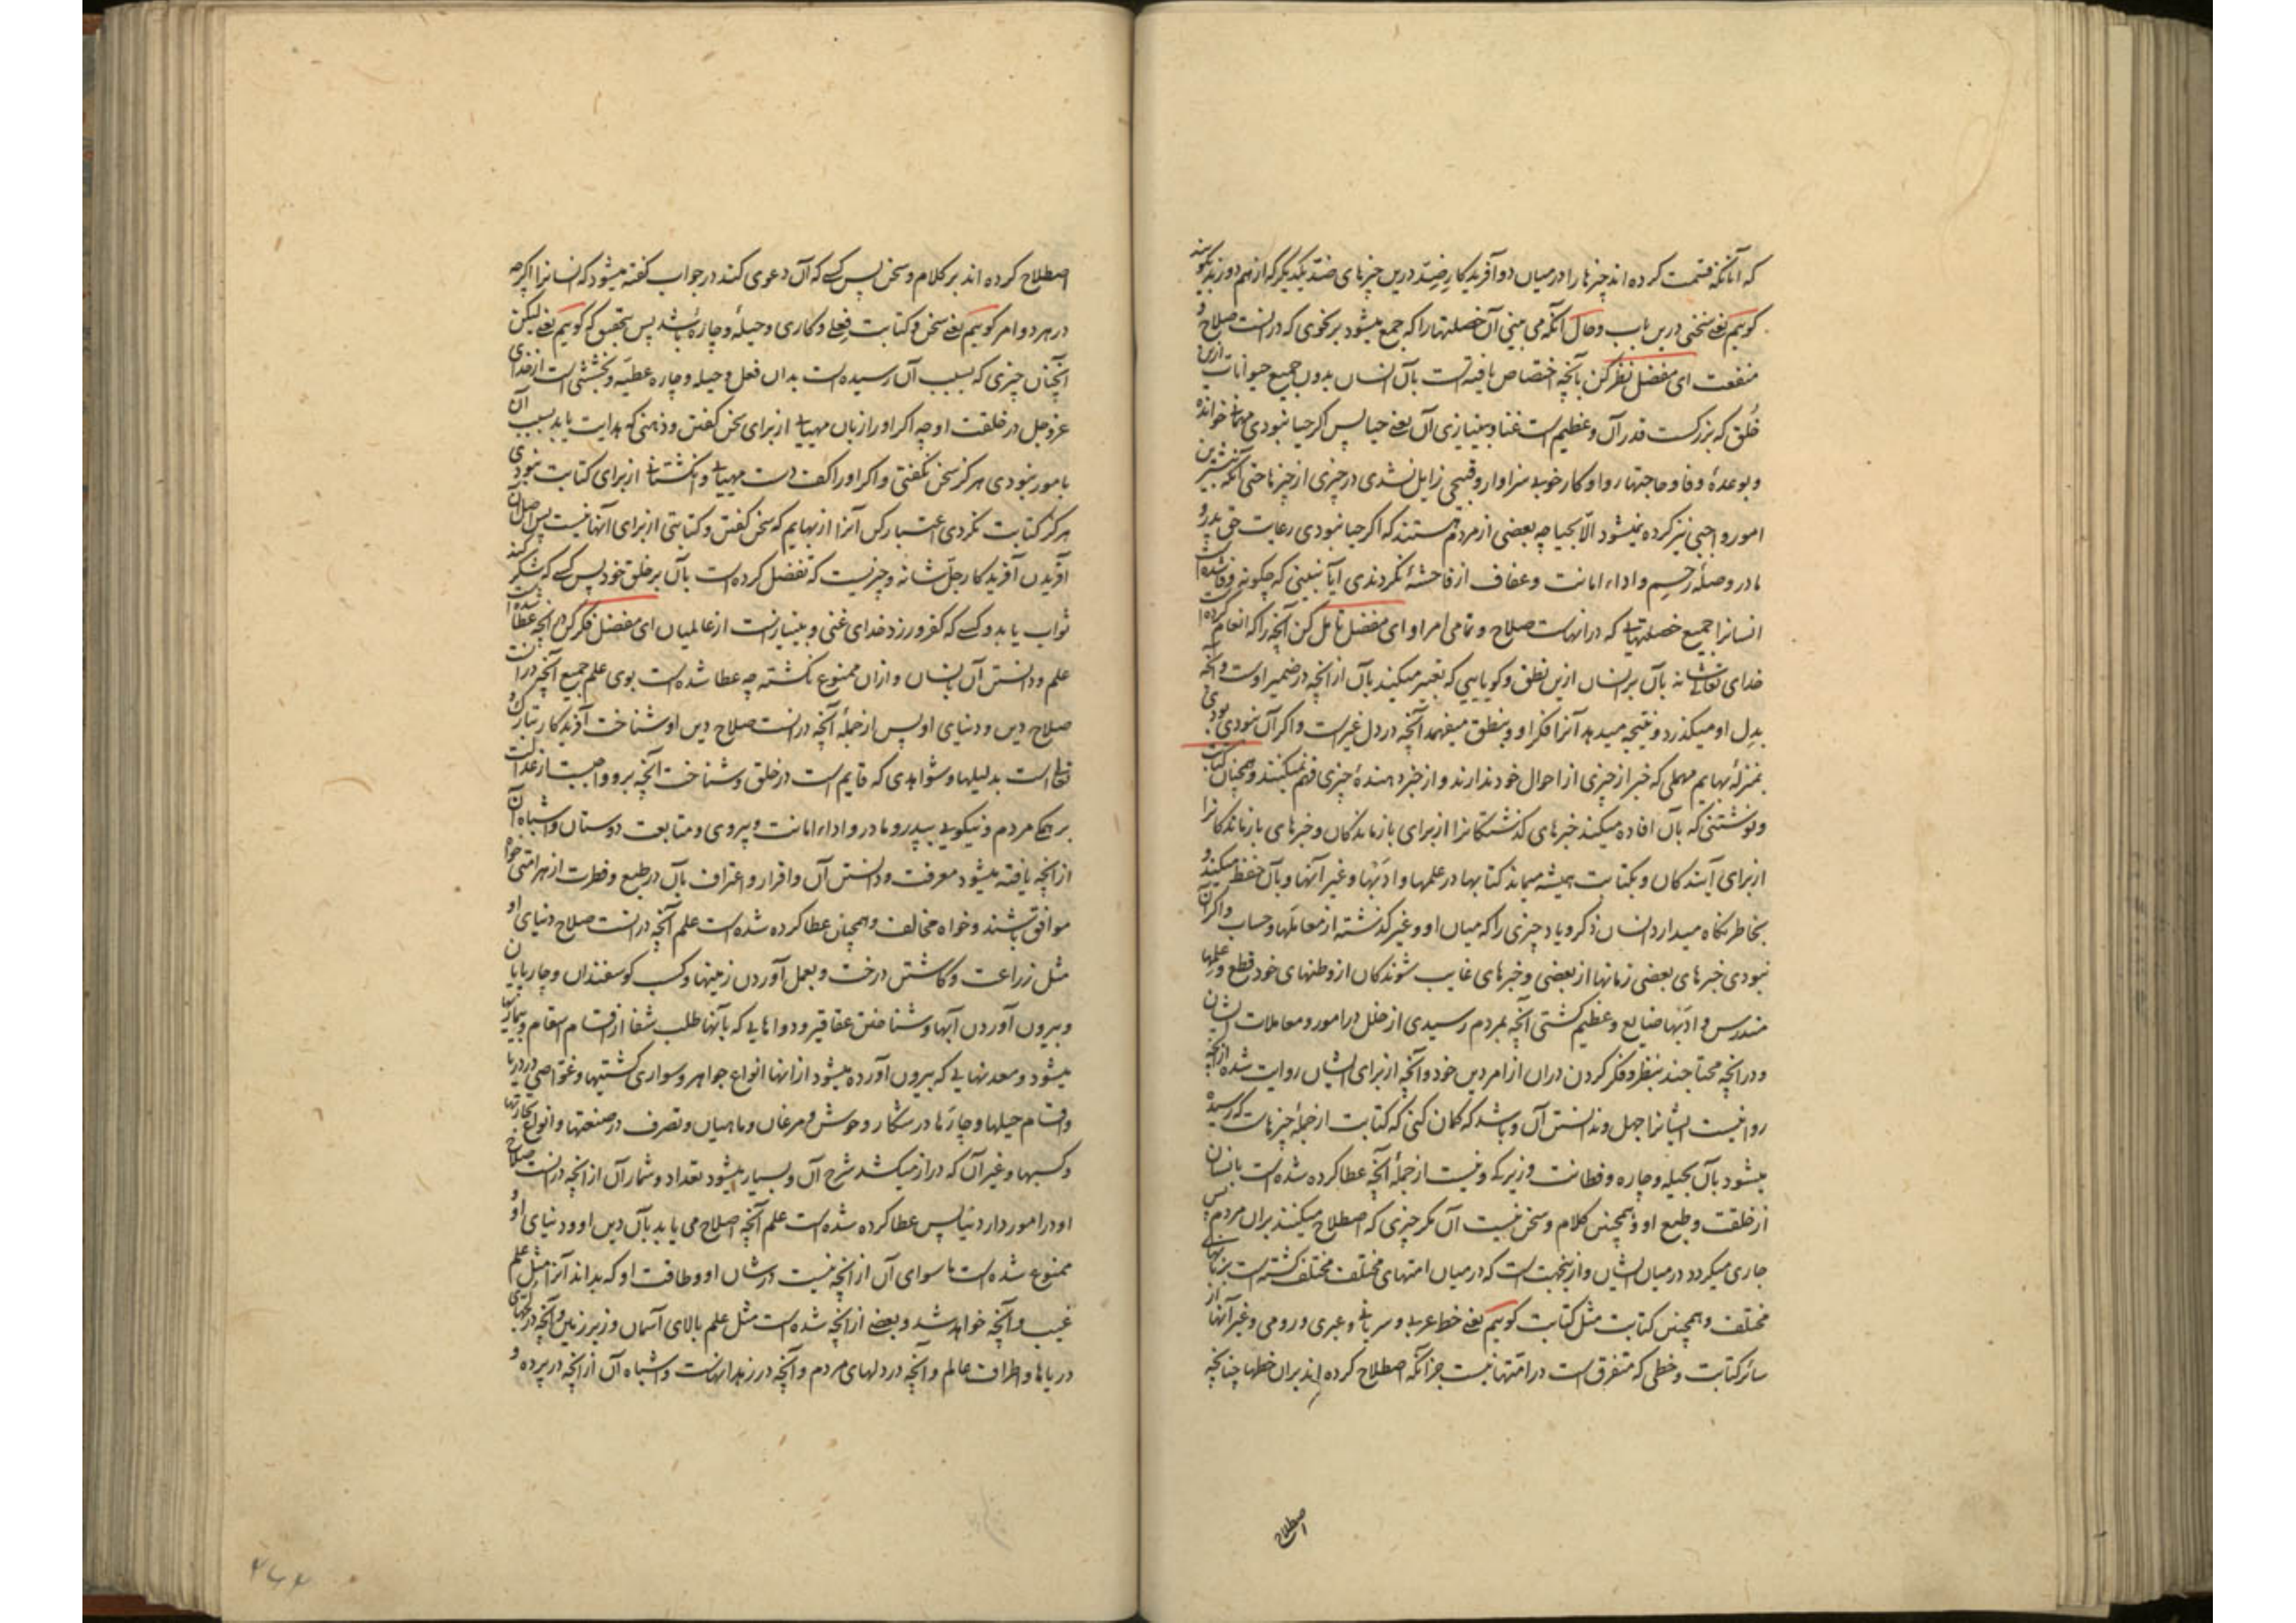 که آنانکه قسمت کرده اند چیزها را در میان دو آفریدکار ضد درین چیزهای ضد یکدیگر که از هم دورند چگونید
کوئیم یعنی سخنی درین باب و حال آنکه می بینی آن خصلتها را که جمع میشود بر نحوی که در انست صلاح و
منفعت ای مفضل نظر کن بآنچه اختصاص یافته است بآن انسان بدون جمیع حیوانات ازین
خُلق که بزرکست قدر آن و عظیم است غنا و بینیازی آن یعنی حیا پس اکر حیا نبودی مهمانی خوانده
و بوعدهٔ وفا و حاجتها روا و کار خوب سزاوار و قبیحی زایل نشدی در چیزی از چیزها حتی آنکه بیشترین
امور واجبی نیز کرده نمیشود الّا بحیا چه بعضی از مردم هستند که اکر حیا نبودی رعایت حق پدر و
مادر و صلهٔ رحم و اداء امانت و عفاف از فاحشهٔ نکردندی آیا نبینی که چکونه وفا شده است
انسانرا جمیع خصلتهایی که در انهاست صلاح و تمامی امر او ای مفضل تأمل کن آنچه را که انعام کرده است
خدای تعالی شانه بآن بر انسان ازین نطق و کویایی که تعبیر میکند بآن از آنچه در ضمیر اوست و آنچه
بدل او میکذرد و نتیجه میدهد آنرا فکر او و بنطق میفهمد آنچه در دل غیر است و اکر آن نبودی بودی
بمنزلهٔ بهایم مهملی که خبر از چیزی از احوال خود ندارند و از خبر دهندهٔ چیزی فهم نمیکنند و همچنان کتابت
و نوشتنی که بآن افاده میکند خبرهای کذشتکانرا از برای بازماندکان و خبرهای بازماندکانرا
از برای آیندکان و بکتابت همیشه میماند کتابها در علمها و ادبها و غیر آنها و بآن حفظ میکند و
بخاطر نکاه میدارد انسان ذکر و یاد چیزی را که میان او و غیر کذشته از معاملها و حساب و اکر آن
نبودی خبرهای بعضی زمانها از بعضی و خبرهای غایب شوندکان از وطنهای خود قطع و علمها
مندرس و ادبها ضایع و عظیم کشتی آنچه بمردم رسیدی از خلل در امور و معاملات ایشان
و در آنچه محتاجند بنظر و فکر کردن در ان از امر دین خود و آنچه از برای ایشان روایت شده از آنچه
روا نیست ایشانرا جهل و ندانستن آن و باشد که کمان کنی که کتابت از جملهٔ چیزهاست که رسیده
میشود بآن بحیله و چاره و فطانت و زیرکی و نیست از جملهٔ آنچه عطا کرده شده است بانسان
از خلقت و طبع او و همچنین کلام و سخن نیست آن مکر چیزی که اصطلاح میکنند بران مردم پس
جاری میکردد در میان ایشان و ازینجهت است که در میان امتهای مختلف مختلف کشته است بزبانهای
مختلف و همچنین کتابت مثل کتابت کوئیم یعنی خط عربی و سریانی و عبری و رومی و غیر آنها از
سائر کتابت و خطی که متفرق است در امتها نیست جز آنکه اصطلاح کرده اند بران خطها چنانچه
اصطلاح
اصطلاح کرده اند بر کلام و سخن پس کسی که آن دعوی کند در جواب کفته میشود که انسانرا اکرچه
در هر دو امر کوئیم یعنی سخن و کتابت فعلی و کاری و حیلهٔ و چارهٔ باشد پس بتحقیق که کوئیم یعنی لیکن
آنچنان چیزی که بسبب آن رسیده است بدان فعل و حیله و چاره عطیه و بخششی است از خدای
عزوجل در خلقت او چه اکر او را زبان مهیایی از برای سخن کفتن و ذهنی که هدایت یابد بسبب آن
بامور نبودی هرکز سخن نکفتی و اکر او را کف دست مهیایی و انکشتانی از برای کتابت نبودی
هرکز کتابت نکردی اعتبار کن آنرا از بهایم که سخن کفتن و کتابتی از برای آنها نیست پس اصل آن
آفریدن آفریدکار جلّ شانه و چیزیست که تفضل کرده است بآن بر خلق خود پس کسی که شکر کند
ثواب یابد و کسی که کفر ورزد خدای غنی و بینیاز است از عالمیان ای مفضل فکر کن در آنچه عطا شده است
علم و دانستن آن بانسان و ازان ممنوع نکشته چه عطا شده است بوی علم جمیع آنچه در انست
صلاح دین و دنیای او پس از جملهٔ آنچه در انست صلاح دین او شناخت آفریدکار تبارک و
تعالی است بدلیلها و شواهدی که قایم است در خلق و شناخت آنچه برو واجبست از عدالت
بر همکی مردم و نیکویی بپدر و مادر و اداء امانت و پیروی و متابعت دوستان و اشباه آن
از آنچه یافته میشود معرفت و دانستن آن و اقرار و اعتراف بآن در طبع و فطرت از هر امتی خواه
موافق باشند و خواه مخالف و همچنان عطا کرده شده است علم آنچه در انست صلاح دنیای او
مثل زراعت و کاشتن درخت و بعمل آوردن زمینها و کسب کوسفندان و چارپایان
و بیرون آوردن آبها و شناختن عقاقیر و دواهایی که بآنها طلب شفا از اقسام اسقام و بیماریها
میشود و معدنهایی که بیرون آورده میشود از انها انواع جواهر و سواری کشتیها و غواصی در دریا
و اقسام حیلها و چارها در شکار وحوش و مرغان و ماهیان و تصرف در صنعتها و انواع تجارتها
و کسبها و غیر آن که دراز میکشد شرح آن و بسیار میشود تعداد و شمار آن از آنچه در انست صلاح
او در امور دار دنیا پس عطا کرده شده است علم آنچه اصلاح می یابد بآن دین او و دنیای او و
ممنوع شده است ما سوای آن از آنچه نیست در شان او و طاقت او که بداند آنرا مثل علم
غیب و آنچه خواهد شد و بعضی از آنچه شده است مثل علم بالای آسمان و زیر زمین و آنچه در لجهای
دریاها و اطراف عالم و آنچه در دلهای مردم و آنچه در زهدانهاست و اشباه آن از آنچه در پرده و